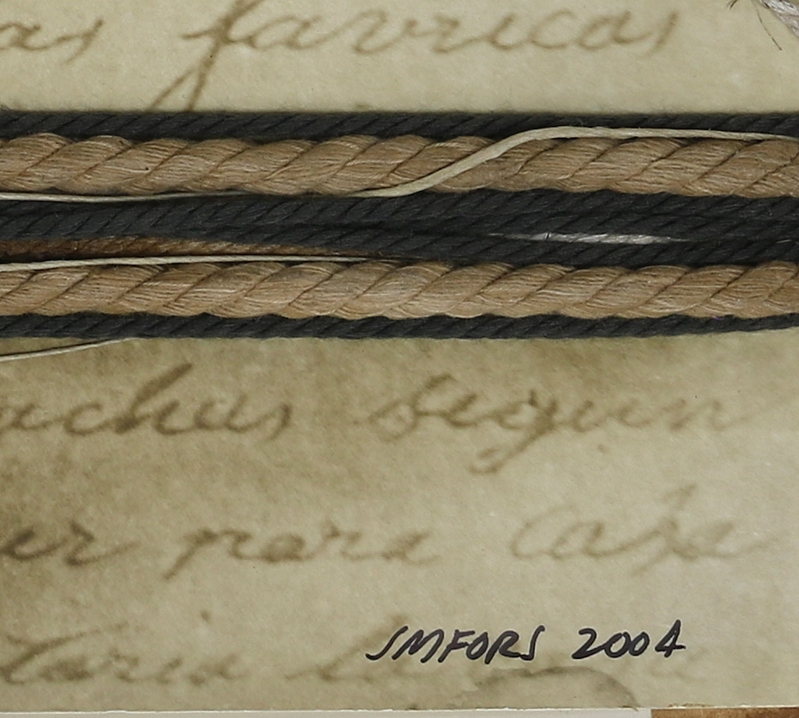 as favricas
achas segun
ur para Cafa
taria
SMFORS 2004